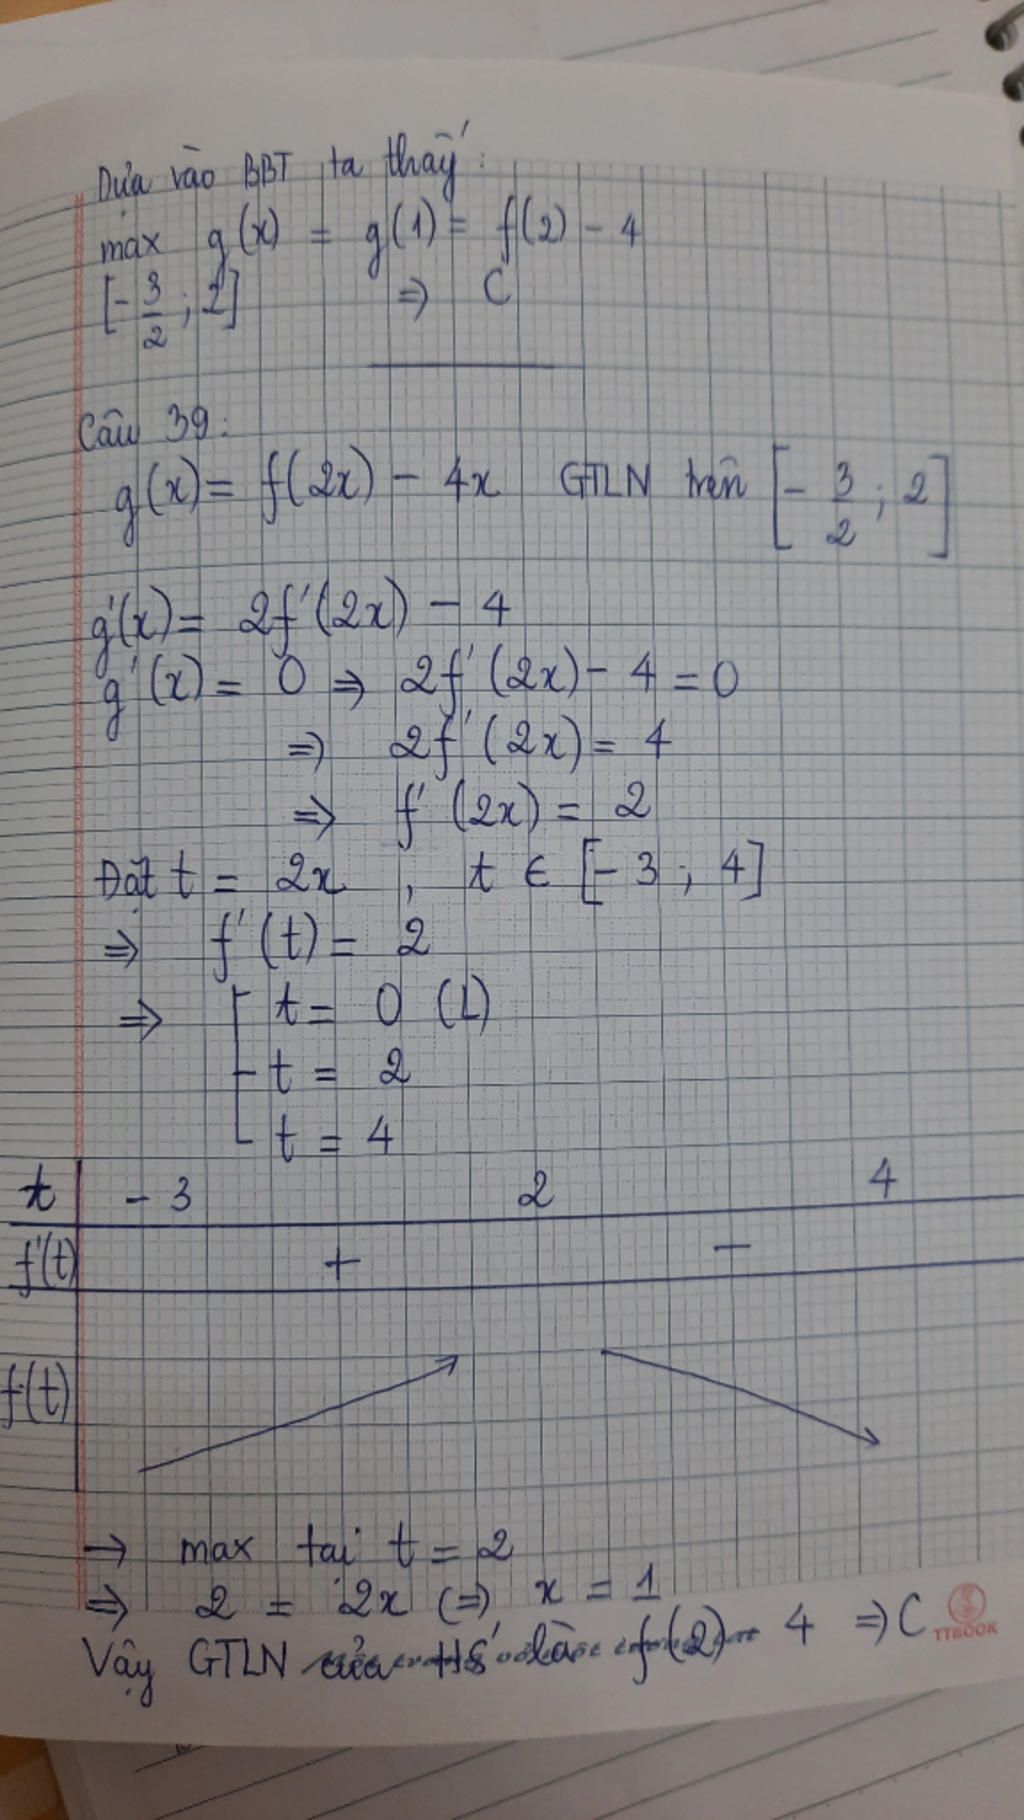 Dựa vào BBT ta thấy :
max g(x) = g(1) = f(2) - 4
[-3/2 ; 2] ⇒ C
Câu 39:
g(x) = f(2x) - 4x GTLN trên [-3/2 ; 2]
g'(x) = 2f'(2x) - 4
g'(x) = 0 ⇒ 2f'(2x) - 4 = 0
⇒ 2f'(2x) = 4
⇒ f'(2x) = 2
Đặt t = 2x , t ∈ [-3 ; 4]
⇒ f'(t) = 2
⇒ [ t = 0 (L)
t = 2
t = 4
t -3 2 4
f'(t) + -
f(t)
→ max tại t = 2
⇒ 2 = 2x (=) x = 1
Vậy GTLN của HS là f(2) - 4 ⇒ C
TTBOOK